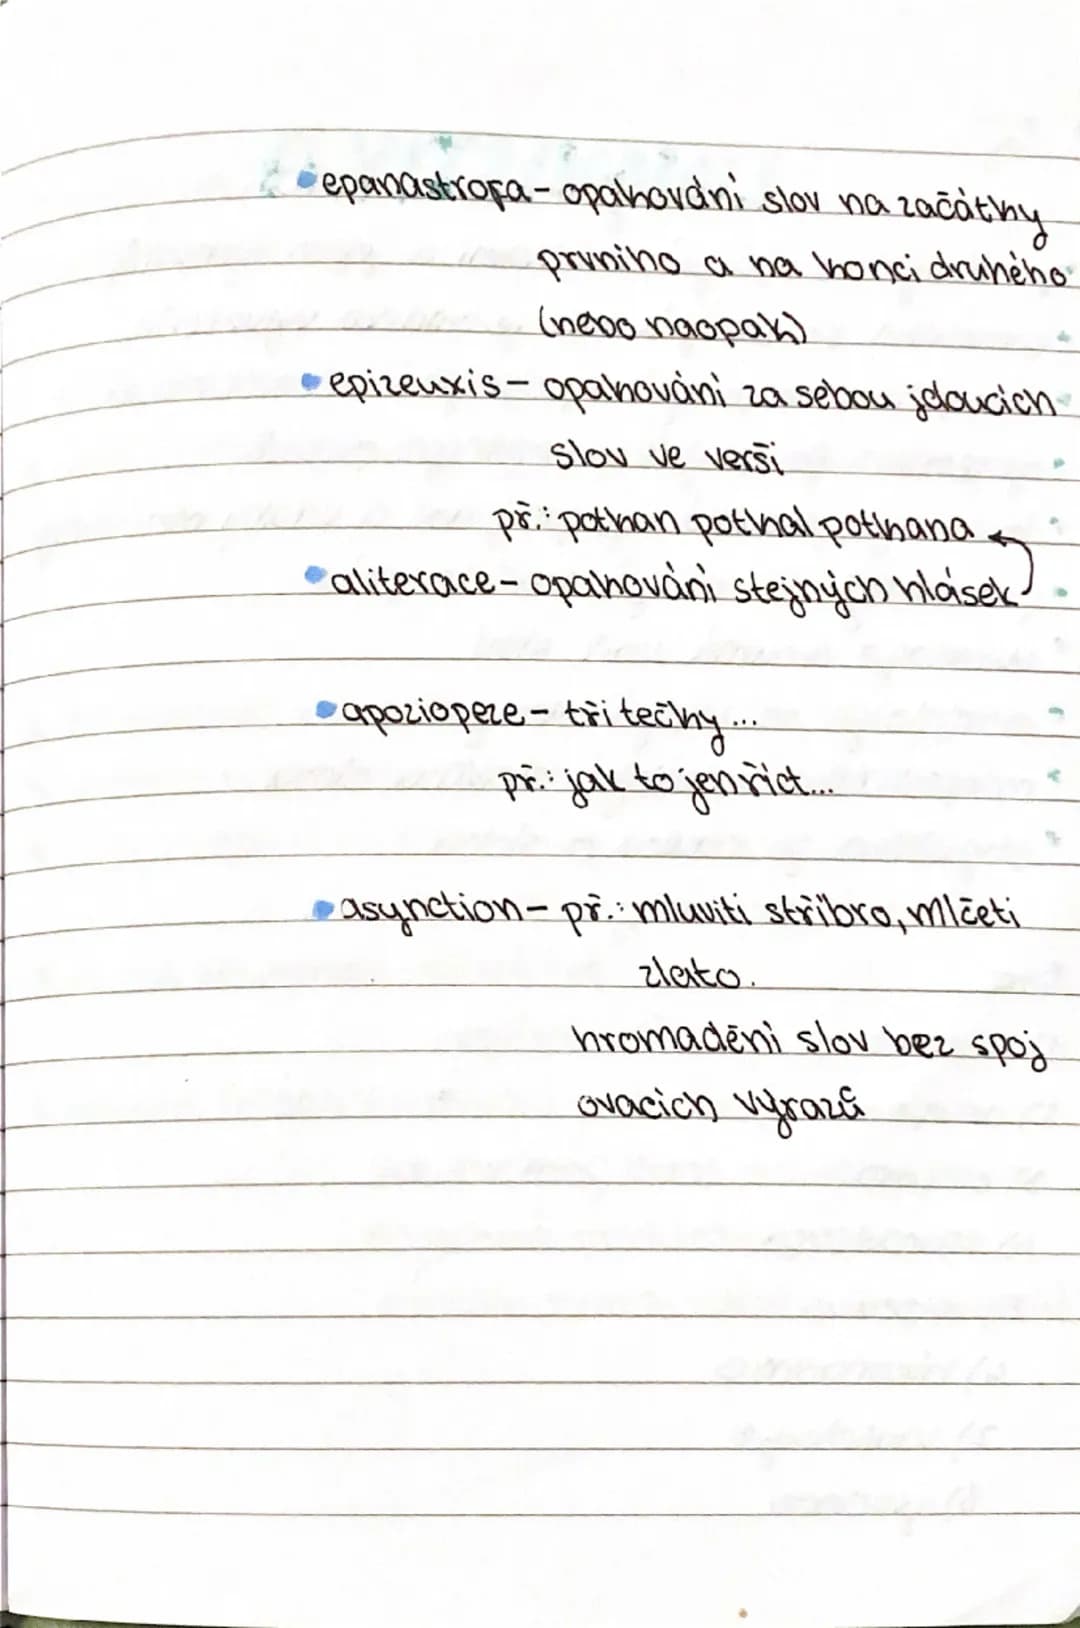 •epanastrofa - opakování slov na začátky
prvního a na konci druhého
(nebo naopak)
•epizeuxis - opakování za sebou jdoucích
slov ve verši
př.: potkan potkal potkana
•aliterace - opakování stejných hlásek
•apoziopeze - tři tečky...
př.: jak to jen říct...
•asynction - př.: mluviti stříbro, mlčeti
zlato.
hromadění slov bez spoj
ovacích výrazů